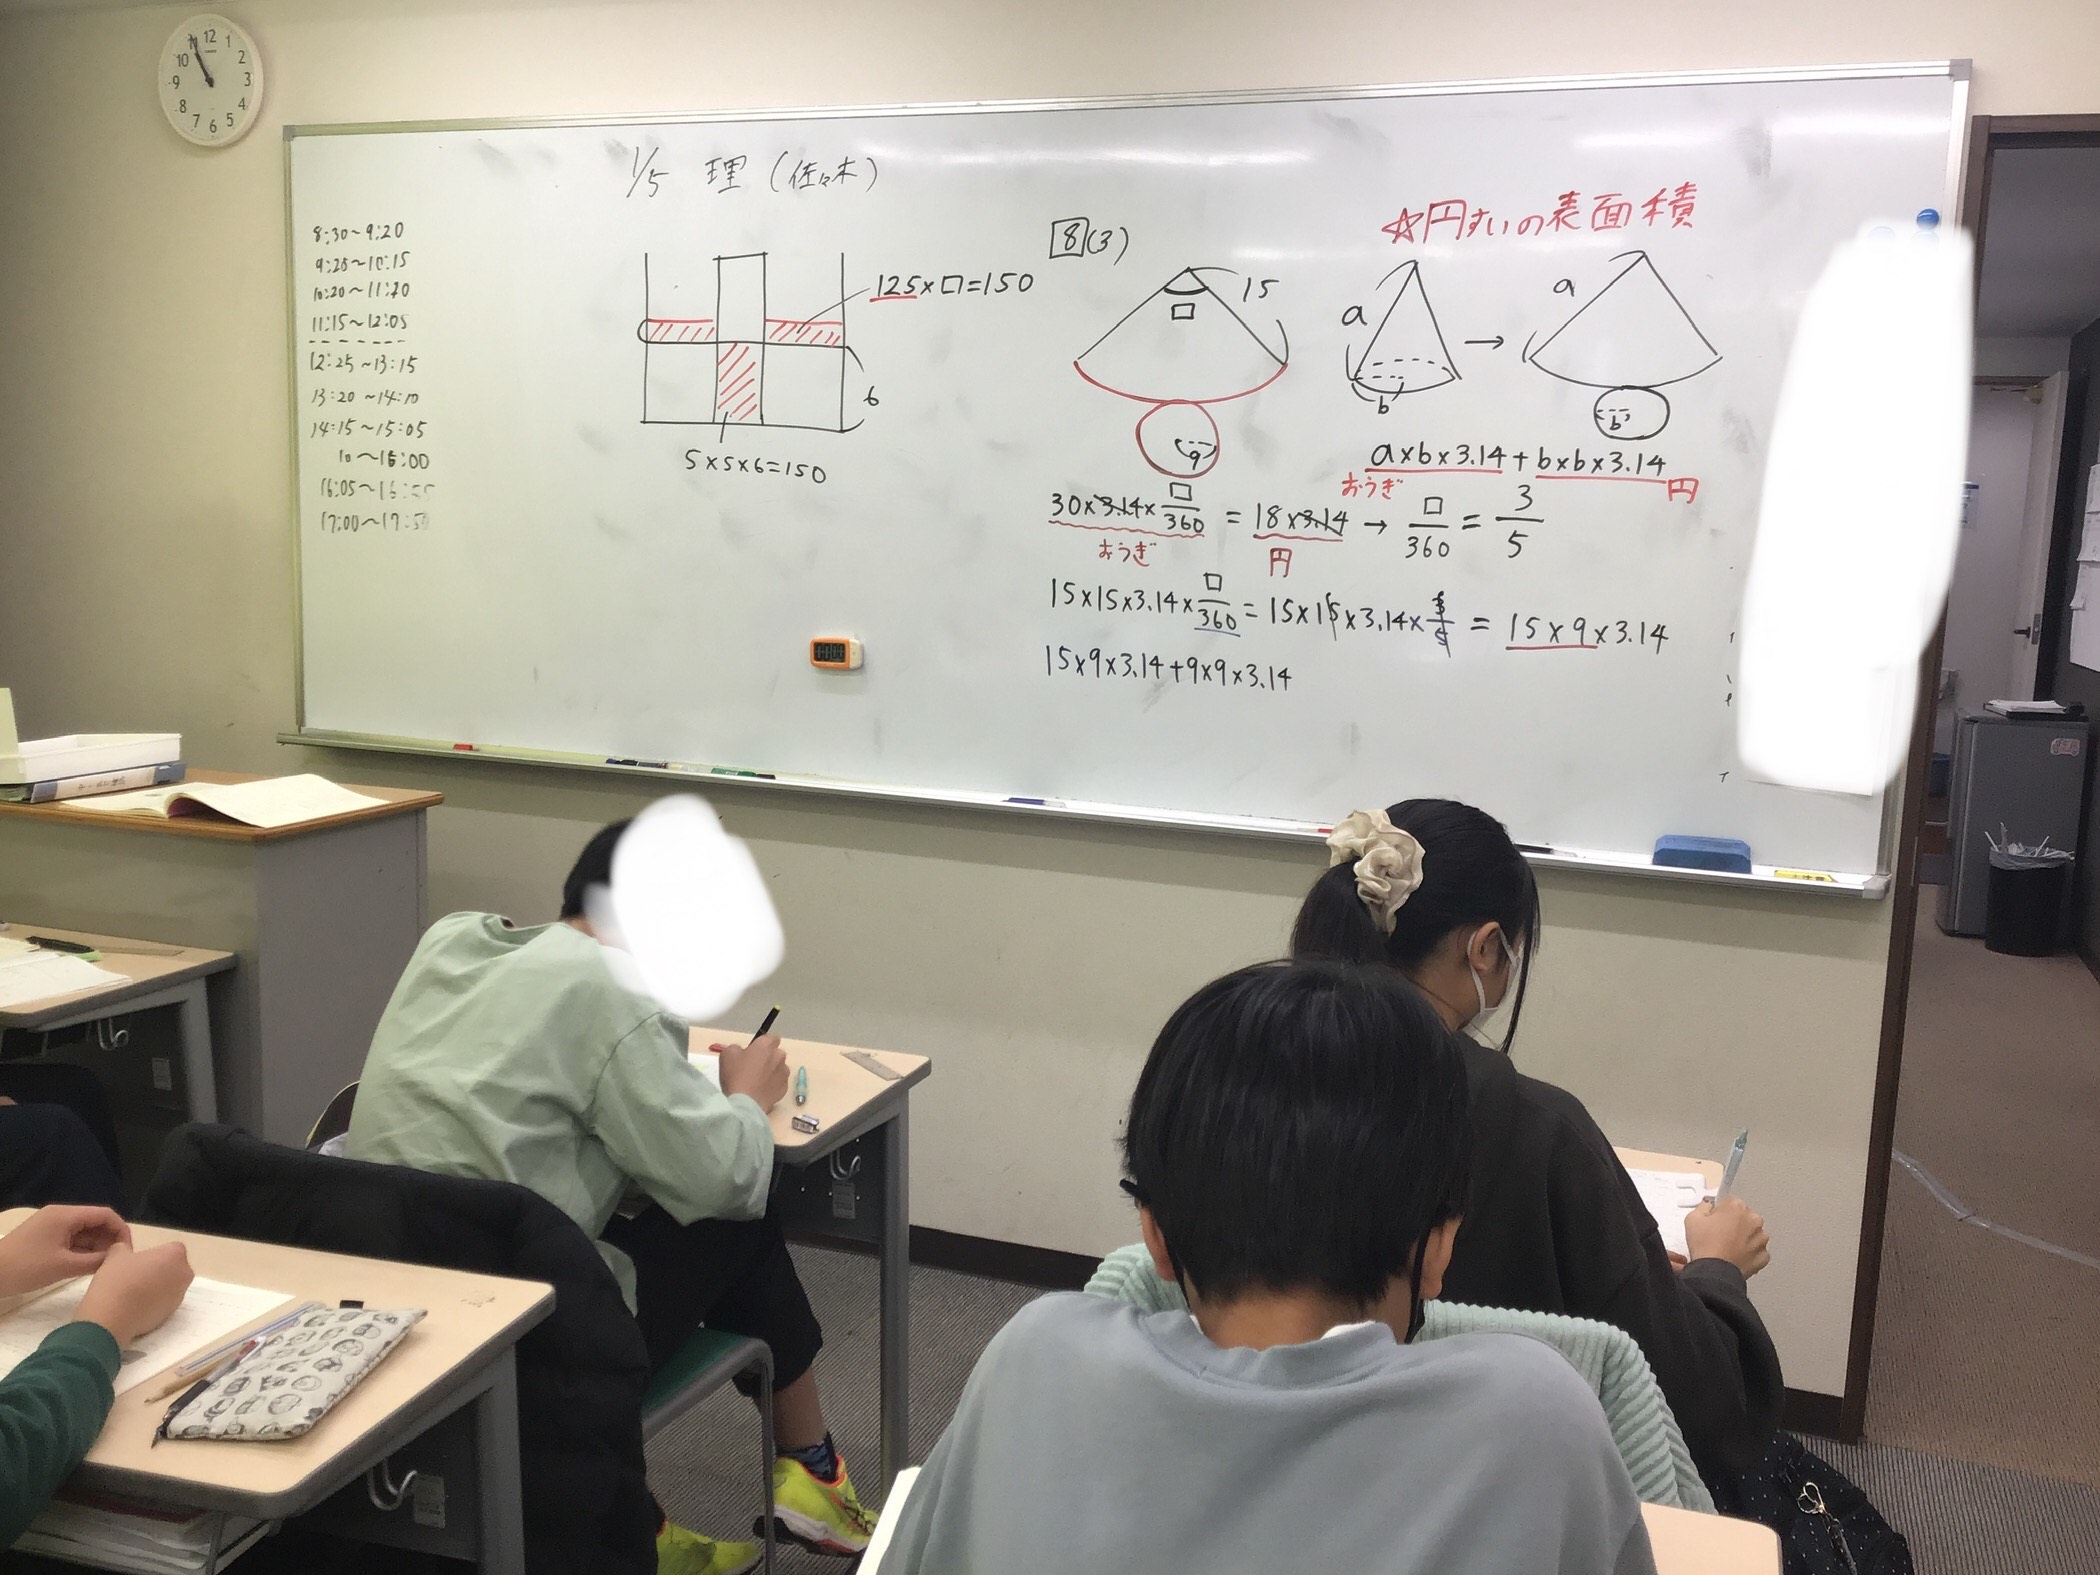 12 1 2 3 4 5 6 7 8 9 10 11
1/5 理 (佐々木)
8:30~9:20
9:25~10:15
10:20~11:10
11:15~12:05
12:25~13:15
13:20~14:10
14:15~15:05
10~16:00
16:05~16:55
17:00~17:50
125×□=150
6
5×5×6=150
8(3)
☆円すいの表面積
15
□
9
a
b
→
a
b
a×b×3.14+b×b×3.14
おうぎ 円
30×3.14×□/360=18×3.14→□/360=3/5
おうぎ 円
15×15×3.14×□/360=15×15×3.14×3/5=15×9×3.14
15×9×3.14+9×9×3.14